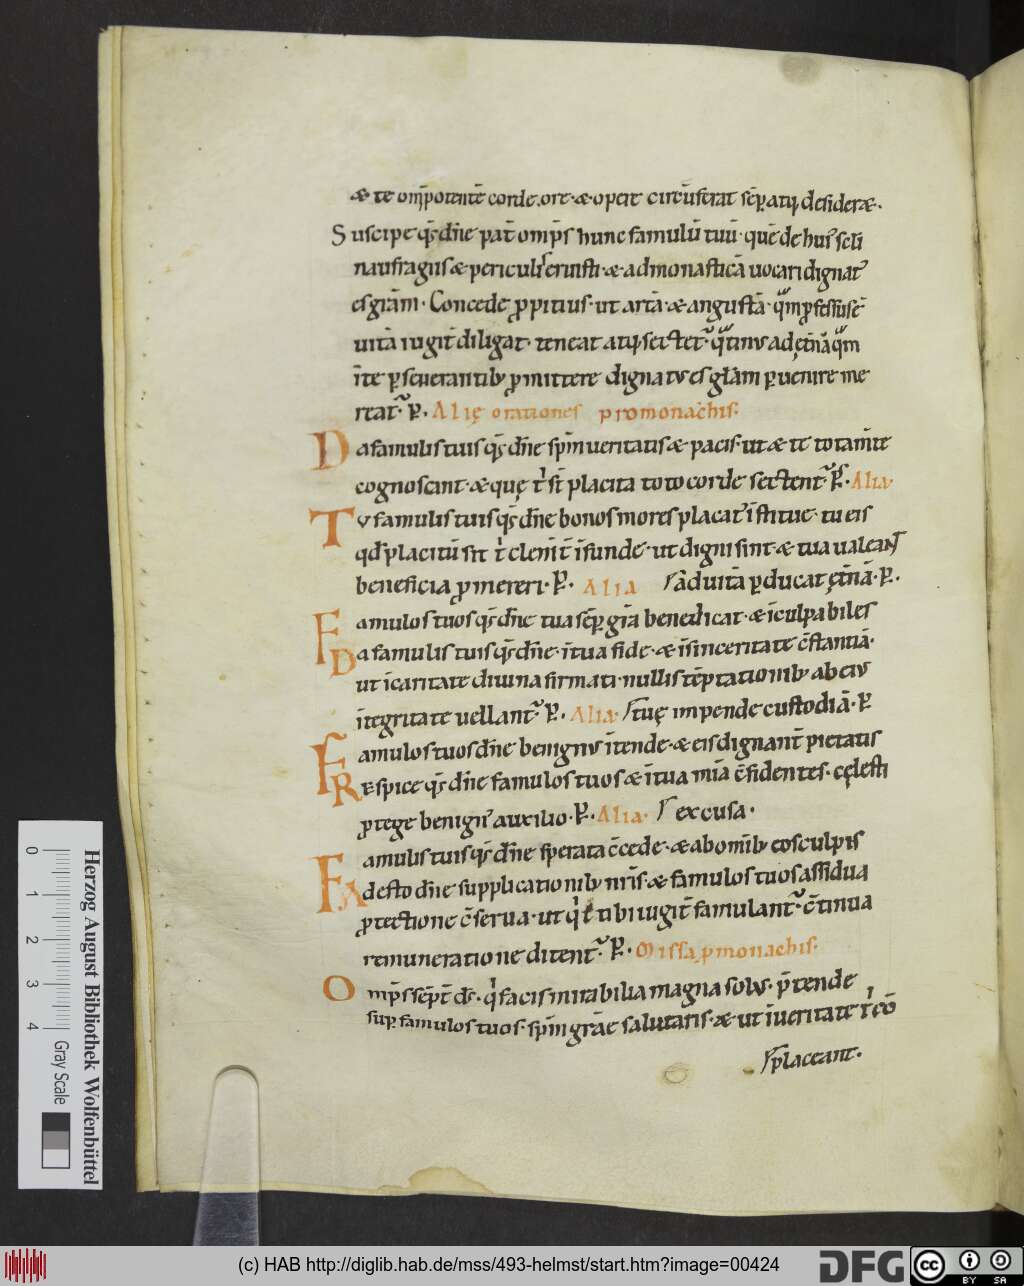 & te om̅potente̅ corde. ore. & opere circu̅ferat se̅p. atq; desider&.
Suscipe qs̅ dn̅e pat̅ omp̅s hunc famulu̅ tuu̅. que̅ de hui' scl̅i
naufragiis & periculis eruisti. & ad monastica̅ uocari dignat'
es gr̅am. Concede ꝓpitius. ut arta̅ & angusta̅. qua̅ ꝓfessus e̅
uita̅ iugit̅ diligat. teneat atq; sectet. qtinus ad et̅na̅ qua̅
i̅ te ꝑseuerantib; ꝓmittere dignatus es gl̅am ꝑuenire me
reat'. ꝑ. Alię orationes pro monachis.
Da famulis tuis qs̅ dn̅e sp̅m ueritatis & pacis. ut & te tota m̅te
cognoscant. & quę t' st̅ placita toto corde sectent'. ꝑ. Alia.
Tu famulis tuis qs̅ dn̅e bonos mores placat' i̅stitue. tu eis
qd placitu̅ sit t' clem̅t̅ i̅funde. ut digni sint. & tua ualeant
beneficia ꝓmereri. ꝑ. Alia ad uita̅ ꝑducat ęt̅na̅. ꝑ.
Famulos tuos qs̅ dn̅e tua se̅p gr̅a benedicat. & i̅culpabiles
Da famulis tuis qs̅ dn̅e. i̅ tua fide. & i̅ sinceritate c̅stantia̅.
ut i̅ caritate diuina firmati. nullis te̅ptationib; ab eius
i̅tegritate uellant'. ꝑ. Alia. tuę impende custodia̅. ꝑ
Famulos tuos dn̅e benignus i̅tende. & eis dignant̅ pietatis
Respice qs̅ dn̅e famulos tuos & i̅ tua mi̅a c̅fidentes. cęlesti
ꝓtege benign' auxilio. ꝑ. Alia. excusa.
Famulis tuis qs̅ dn̅e sperata c̅cede. & ab om̅ib; eos culpis
Adesto dn̅e supplicationib; nr̅is. & famulos tuos assidua
ꝓtectione c̅serua. ut q' t̅ tibi iugit̅ famulant'. c̅tinua
remuneratione ditent'. ꝑ. Missa ꝓ monachis.
Omp̅s se̅pt̅ ds̅. q' facis mirabilia magna solus. p̅tende
sup famulos tuos. sp̅m gr̅ae salutaris. & ut i̅ ueritate t' co̅
placeant.
Herzog August Bibliothek Wolfenbüttel
0 1 2 3 4 Gray Scale
(c) HAB http://diglib.hab.de/mss/493-helmst/start.htm?image=00424
DFG
cc BY SA